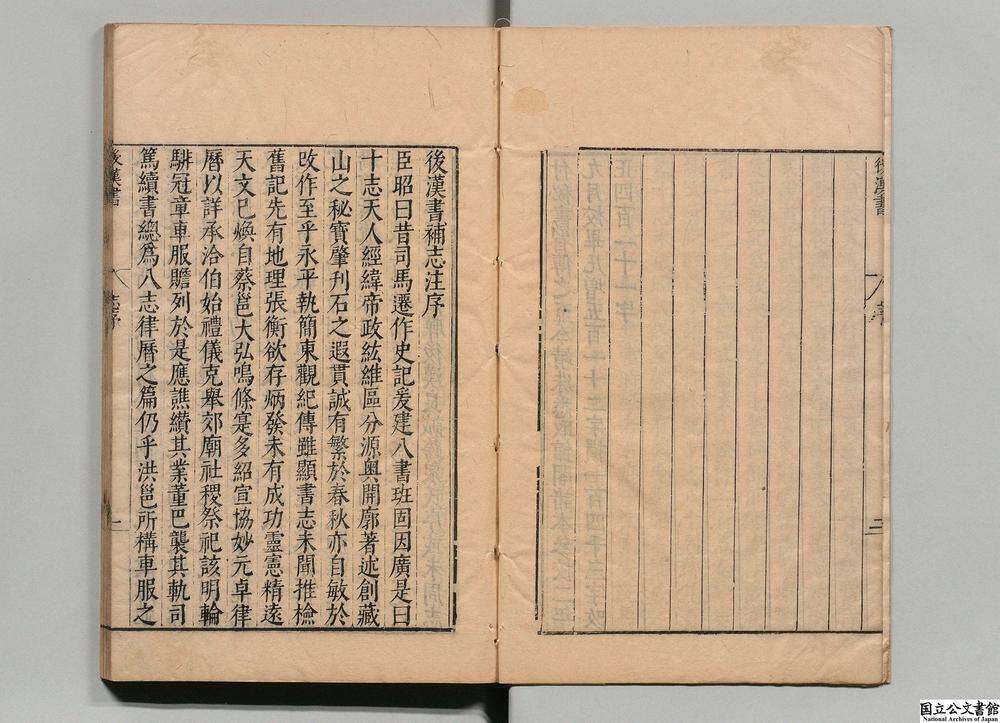 後漢書
後漢書補志注序
臣昭曰昔司馬遷作史記爰建八書班固因廣是曰
十志天人經緯帝政紘維區分源奧開廓著述創藏
山之秘寶肇刊石之遐貫誠有繁於春秋亦自敏於
改作至乎永平執簡東觀紀傳雖顯書志未聞推檢
舊記先有地理張衡欲存炳發未有成功靈憲精遠
天文已煥自蔡邕大弘鳴條寔多紹宣協妙元卓律
曆以詳承洽伯始禮儀克舉郊廟社稷祭祀該明輪
騑冠章車服贍列於是應譙纘其業董巴襲其軌司
馬續書總爲八志律曆之篇仍乎洪邕所構車服之
後漢書
志序
一
国立公文書館
National Archives of Japan